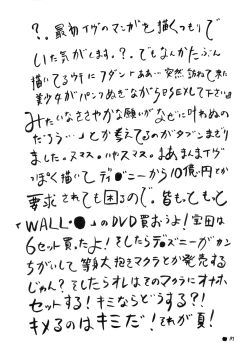 ？．最初イヴのマンガを描くつもりで
いた気がします。？．でもなんかたぶん
描いてるウチにフダン「ああ…突然訪ねて来た
美少女がパンツぬぎながらSEXして下さい♨
みたいなささやかな願いがなぜに叶わぬの
だろう…」とか考えてるのがタブンまざり
ました。スマス。ハヤスマス。まあまんまイヴ
っぽく描いてディ●ニーから10億円とか
要求されても困るので。皆もってもっと
「WALL・●」のDVD買おうよ！宝田は
6セット買ったよ！そしたらディズニーがカン
ちがいして等身大抱きマクラとか発売する
じゃん？そしたらオレはそのマクラにオナホ
セットする！キミならどうする？！
キメるのはキミだ！それが夏！